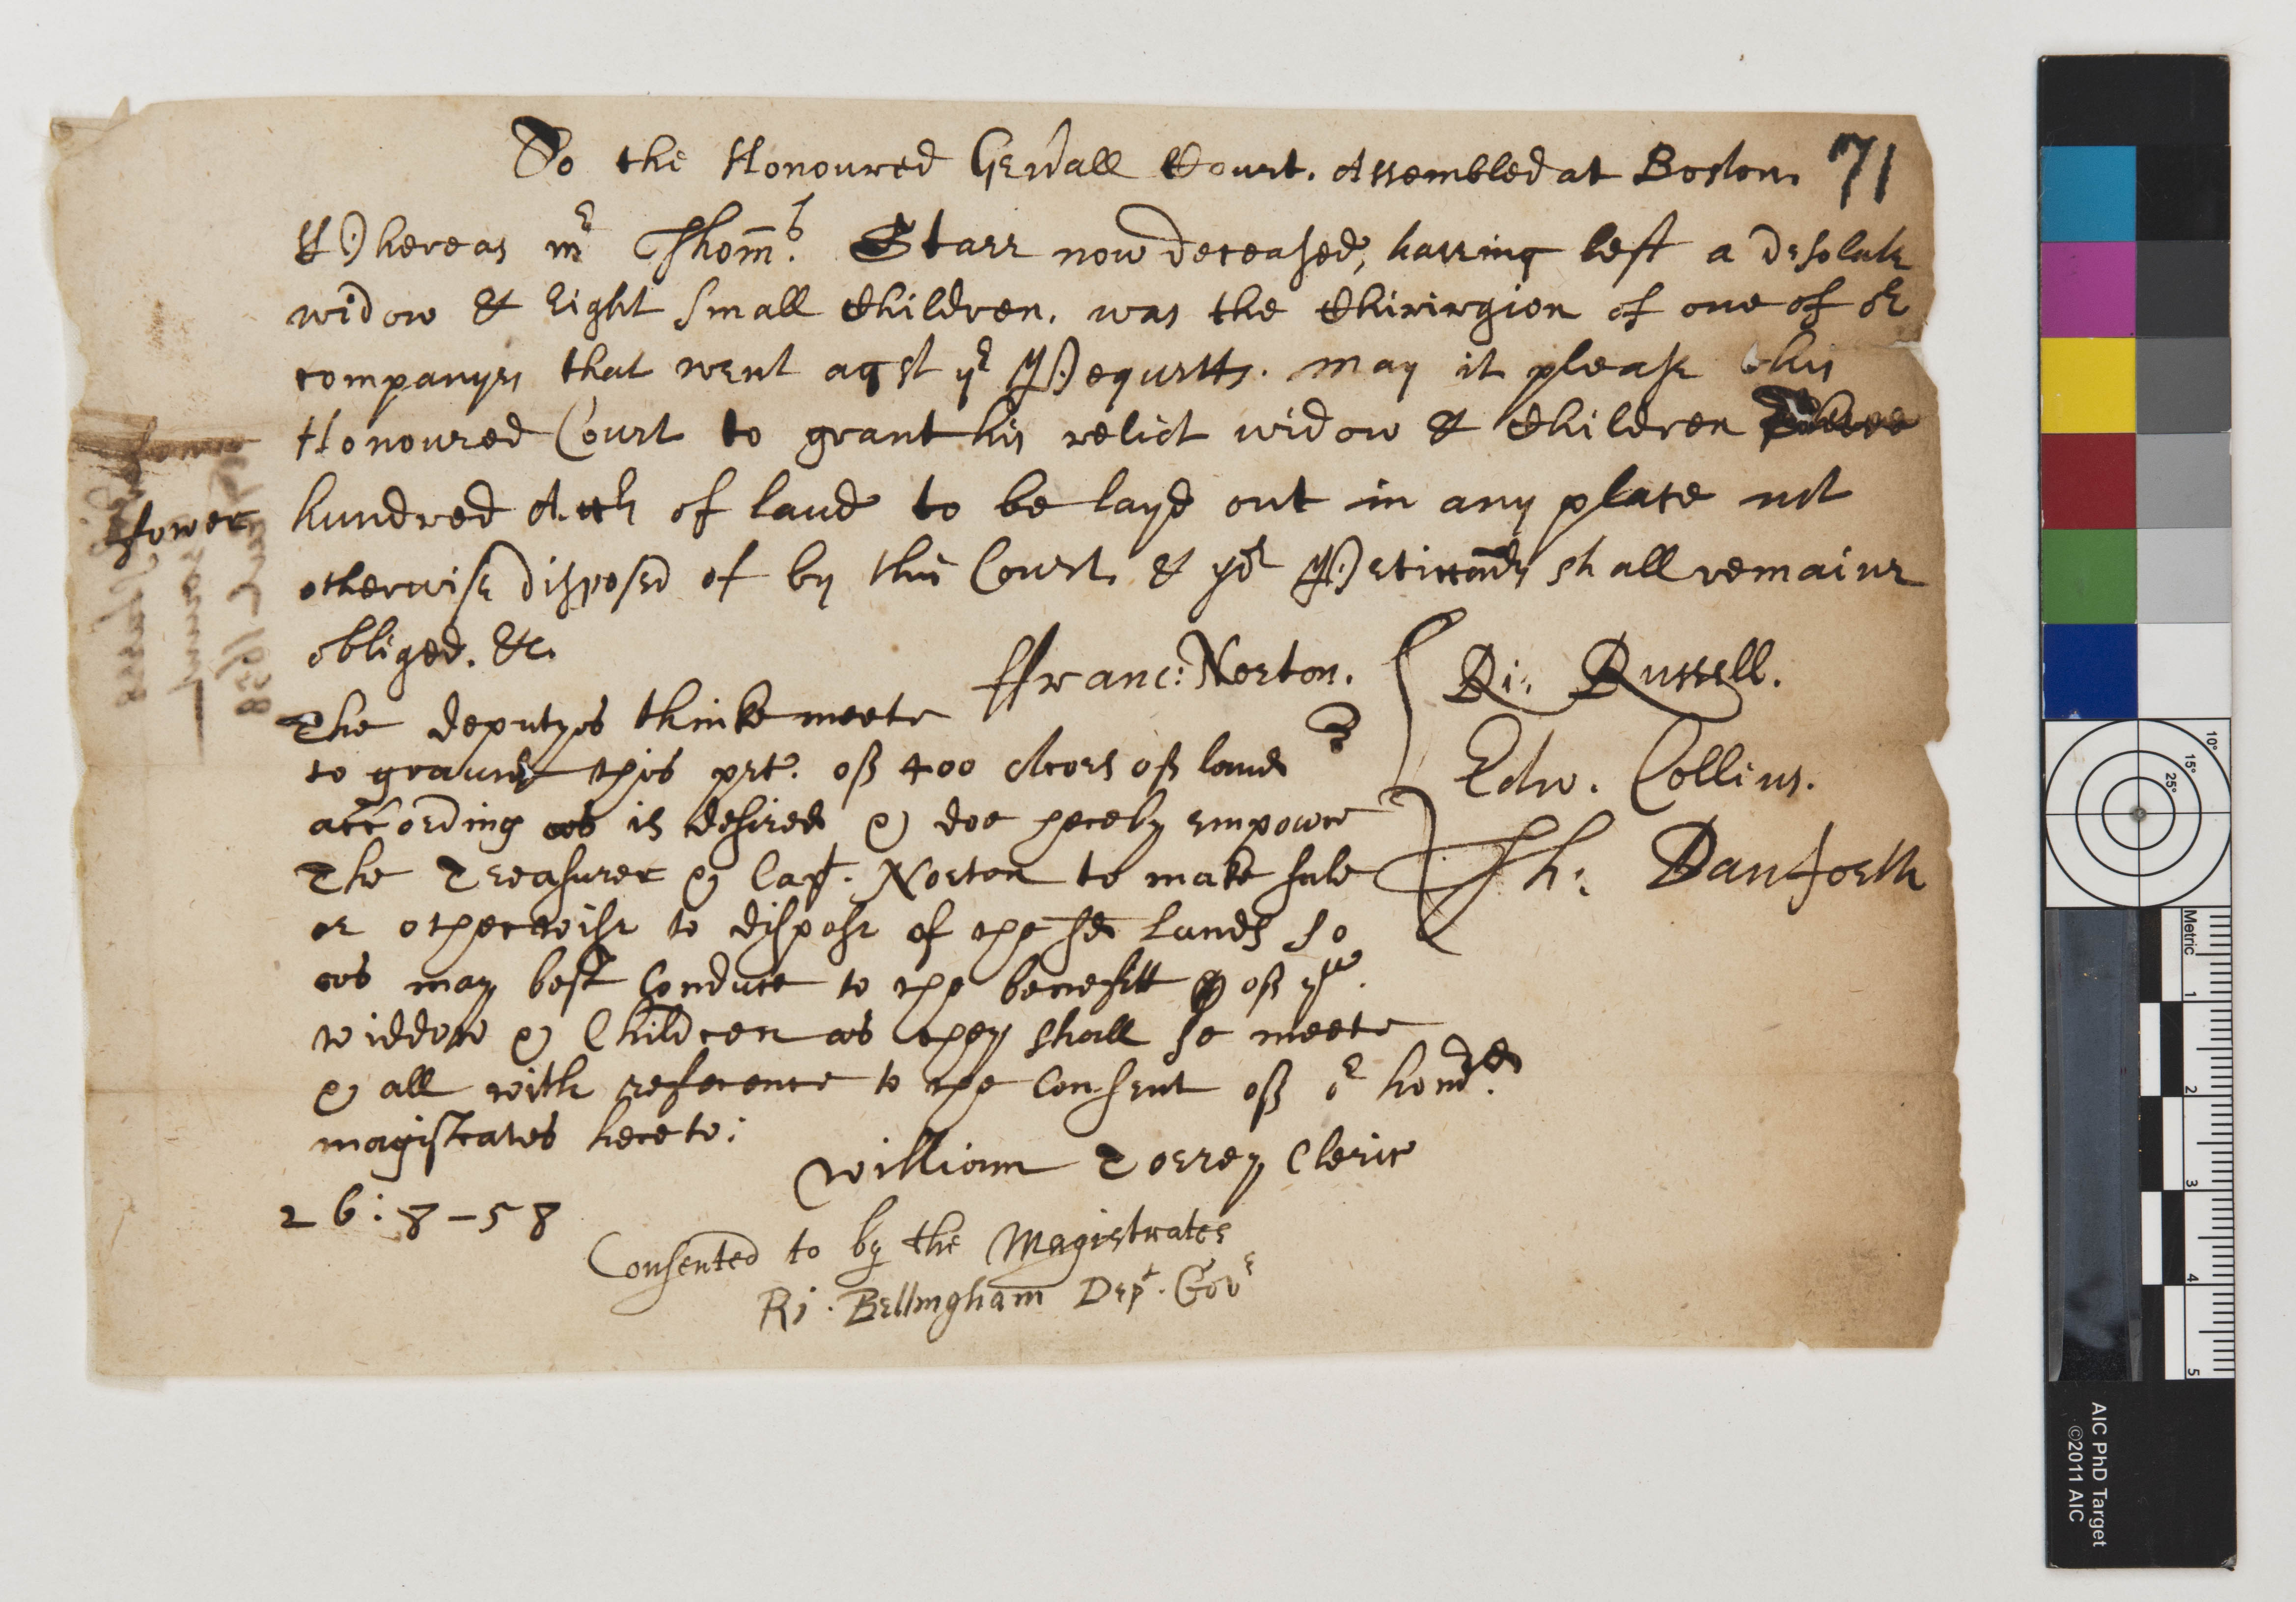 To the Honoured Genall Court. Assembled at Boston. 71
Whereas mr Thoms. Starr now deceased, having left a desolate
widow & eight small children. was the Chirirgion of one of or
companyes that went agst ye Pequetts. may it please this
Honoured Court to grant his relict widow & children
fower hundred A. of land to be layd out in any place not
otherwise disposed of by this Court. & yor shall remaine
obliged. &c.
ffranc: Norton. Ri: Russell.
Edw. Collins.
Th: Danforth
The deputyes thinke meete
to graunt this pet. of 400 Acors of land
according as is desired & doe hereby empowre
The Treasurer & Capt. Norton to make sale
or otherwise to dispose of the sd lands so
as may best Conduce to the benefitt of ye
widdow & Children as they shall se meete
& all with reference to the Consent of or honord
magistrates hereto:
William Torrey Cleric
26:8-58
Consented to by the Magistrates
Ri. Bellingham Dept. Govr